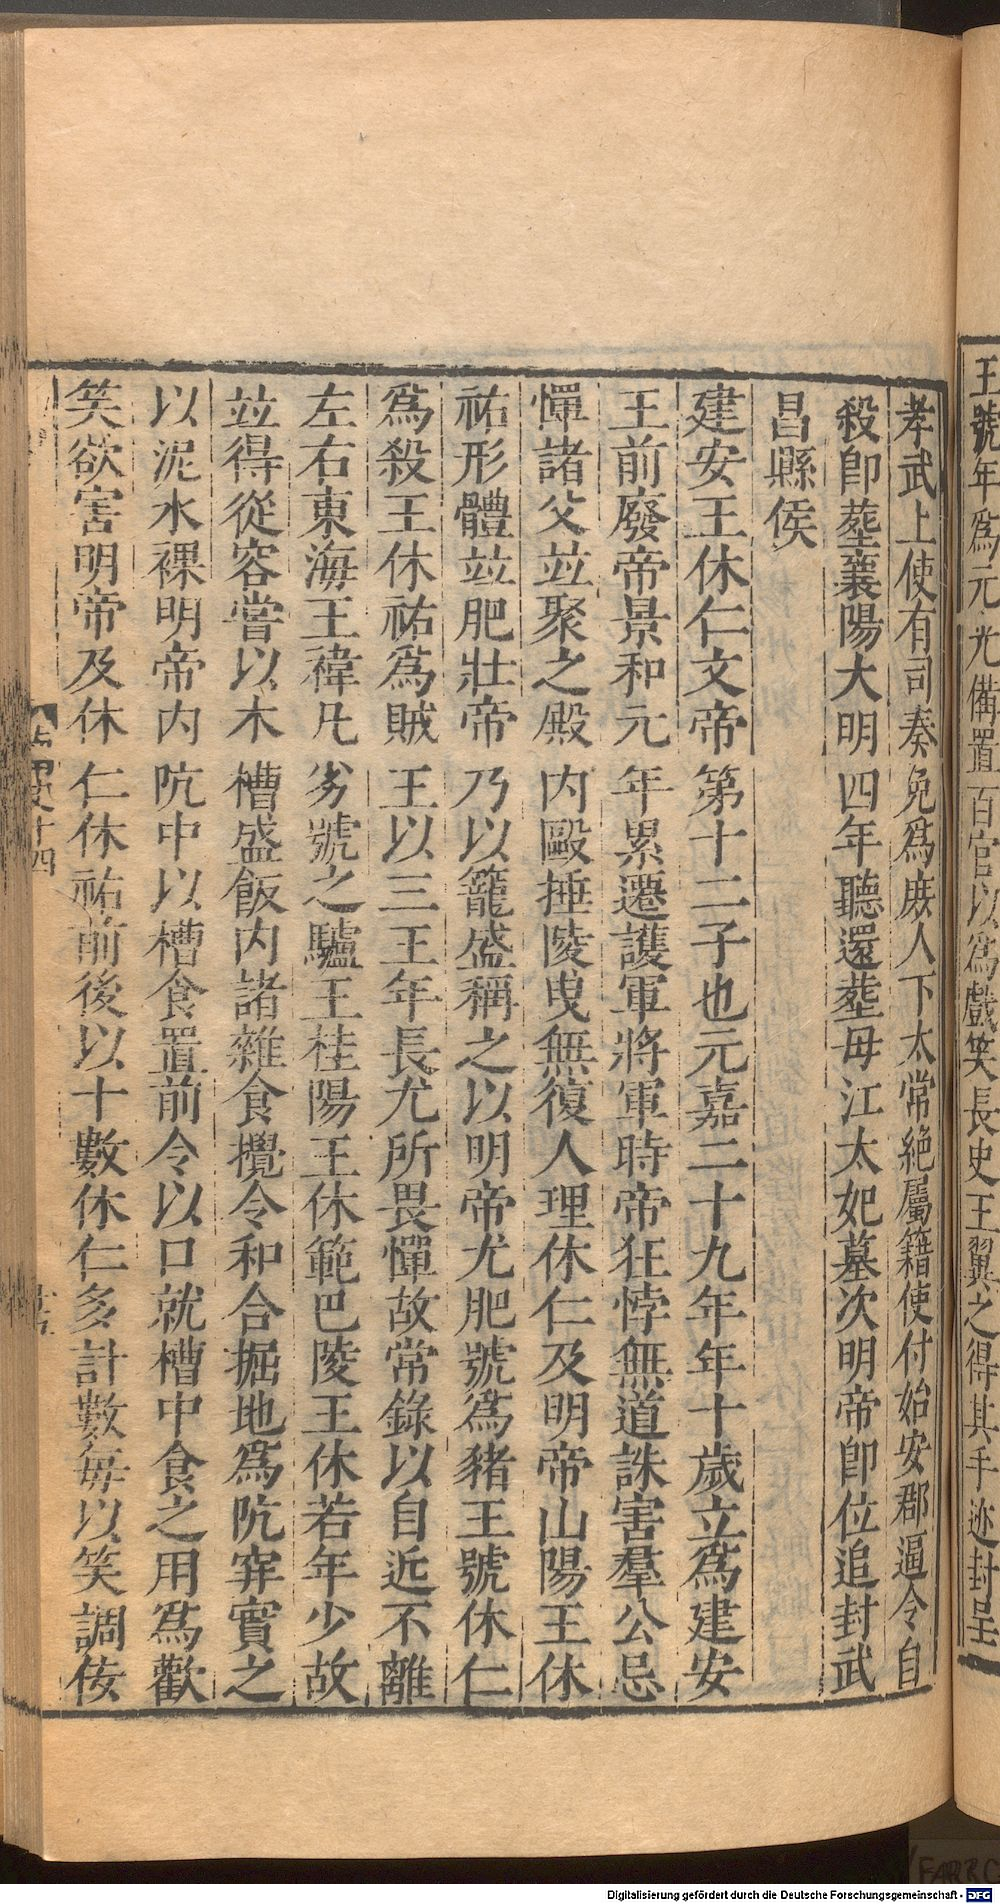 王號年爲元光備置百官以爲戲笑長史王翼之得其手迹封呈
孝武上使有司奏免爲庻人下太常絶屬籍使付始安郡逼令自
殺卽塟襄陽大明四年聽還塟毋江太妃墓次明帝卽位追封武
昌縣侯
建安王休仁文帝第十二子也元嘉二十九年年十歲立爲建安
王前廢帝景和元年累遷護軍將軍時帝狂悖無道誅害羣公忌
憚諸父竝聚之殿内毆捶陵曳無復人理休仁及明帝山陽王休
祐形體竝肥壯帝乃以籠盛稱之以明帝尤肥號爲豬王號休仁
爲殺王休祐爲賊王以三王年長尤所畏憚故常錄以自近不離
左右東海王禕凡劣號之驢王桂陽王休範巴陵王休若年少故
竝得從容嘗以木槽盛飯内諸雜食攪令和合掘地爲阬穽實之
以泥水裸明帝内阬中以槽食置前令以口就槽中食之用爲歡
笑欲害明帝及休仁休祐前後以十數休仁多計數每以笑調佞
十四
Digitalisierung gefördert durch die Deutsche Forschungsgemeinschaft - DFG